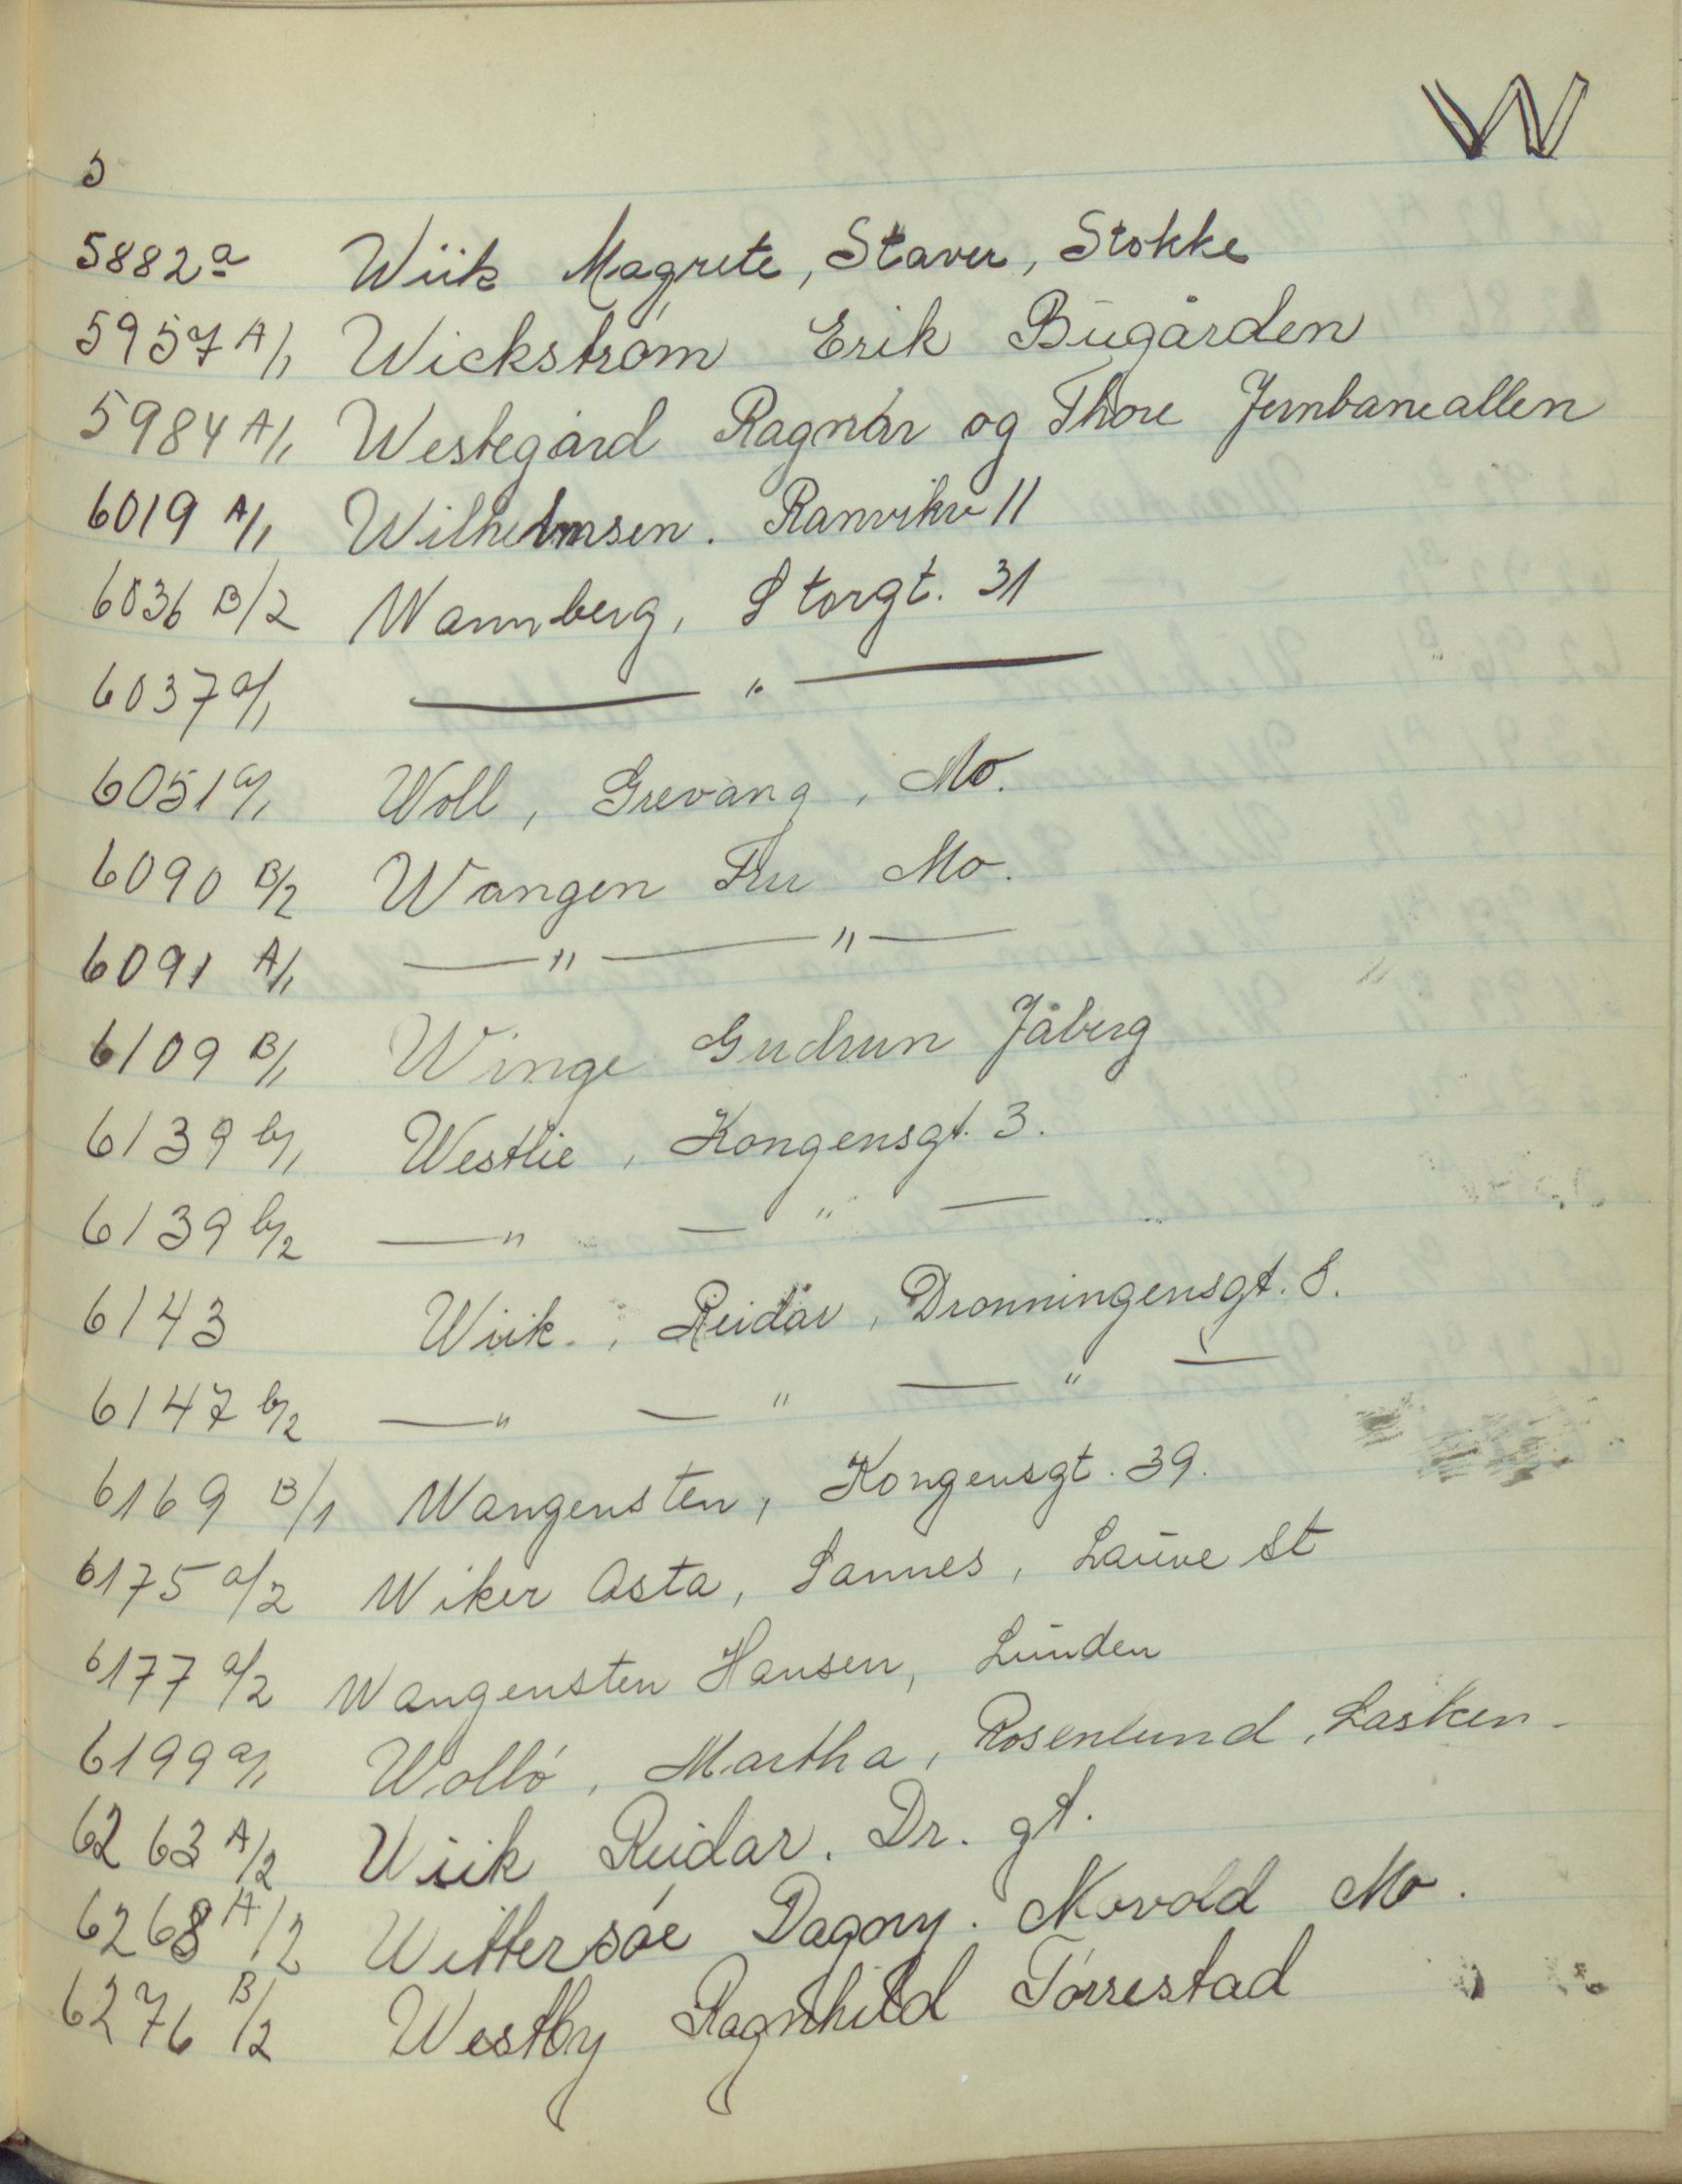 W
5
5882 a Wiik Magrete, Staver, Stokke
5957 A/1 Wickstrøm Erik Bugården
5984 A/1 Westegård Ragnar og Thore Jernbaneallen
6019 A/1 Wilhelmsen. Ranvikv 11
6036 B/2 Wannberg, Storgt. 31
6037 a/1 — " —
6051 a/1 Woll, Grevang, Mo.
6090 B/2 Wangen Fru Mo.
6091 A/1 — " — " —
6109 B/1 Winge Gudrun Jåberg
6139 b/1 Westlie, Kongensgt. 3.
6139 b/2 — " — " —
6143 Wiik., Reidar, Dronningensgt. 8.
6147 b/2 — " — " — " —
6169 B/1 Wangensten, Kongensgt. 39.
6175 a/2 Wiker Asta, Sannes, Lauve st
6177 a/2 Wangensten Hansen, Lunden
6199 a/1 Wollø, Martha, Rosenlund, Lasken.
6263 A/2 Wiik Reidar. Dr. gt.
6268 A/2 Wittersøe Dagny. Movold Mo.
6276 B/2 Westby Ragnhild Torrestad